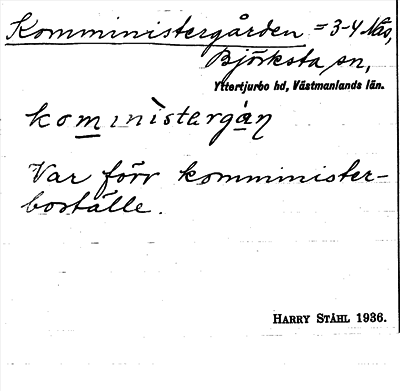 Komministergården = 3-4 Näs,
Björksta sn,
Yttertjurbo hd, Västmanlands län.
kominìstergán
Var förr komminister-
boställe.
HARRY STÅHL 1936.